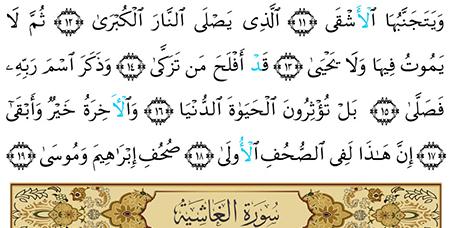 وَيَتَجَنَّبُهَا الْأَشْقَى ﴿١١﴾ الَّذِي يَصْلَى النَّارَ الْكُبْرَىٰ ﴿١٢﴾ ثُمَّ لَا
يَمُوتُ فِيهَا وَلَا يَحْيَىٰ ﴿١٣﴾ قَدْ أَفْلَحَ مَن تَزَكَّىٰ ﴿١٤﴾ وَذَكَرَ اسْمَ رَبِّهِۦ
فَصَلَّىٰ ﴿١٥﴾ بَلْ تُؤْثِرُونَ الْحَيَوٰةَ الدُّنْيَا ﴿١٦﴾ وَالْأَخِرَةُ خَيْرٌ وَأَبْقَىٰٓ
﴿١٧﴾ إِنَّ هَـٰذَا لَفِي الصُّحُفِ الْأُولَىٰ ﴿١٨﴾ صُحُفِ إِبْرَاهِيمَ وَمُوسَىٰ ﴿١٩﴾
سُورَةُ الْغَاشِيَةِ